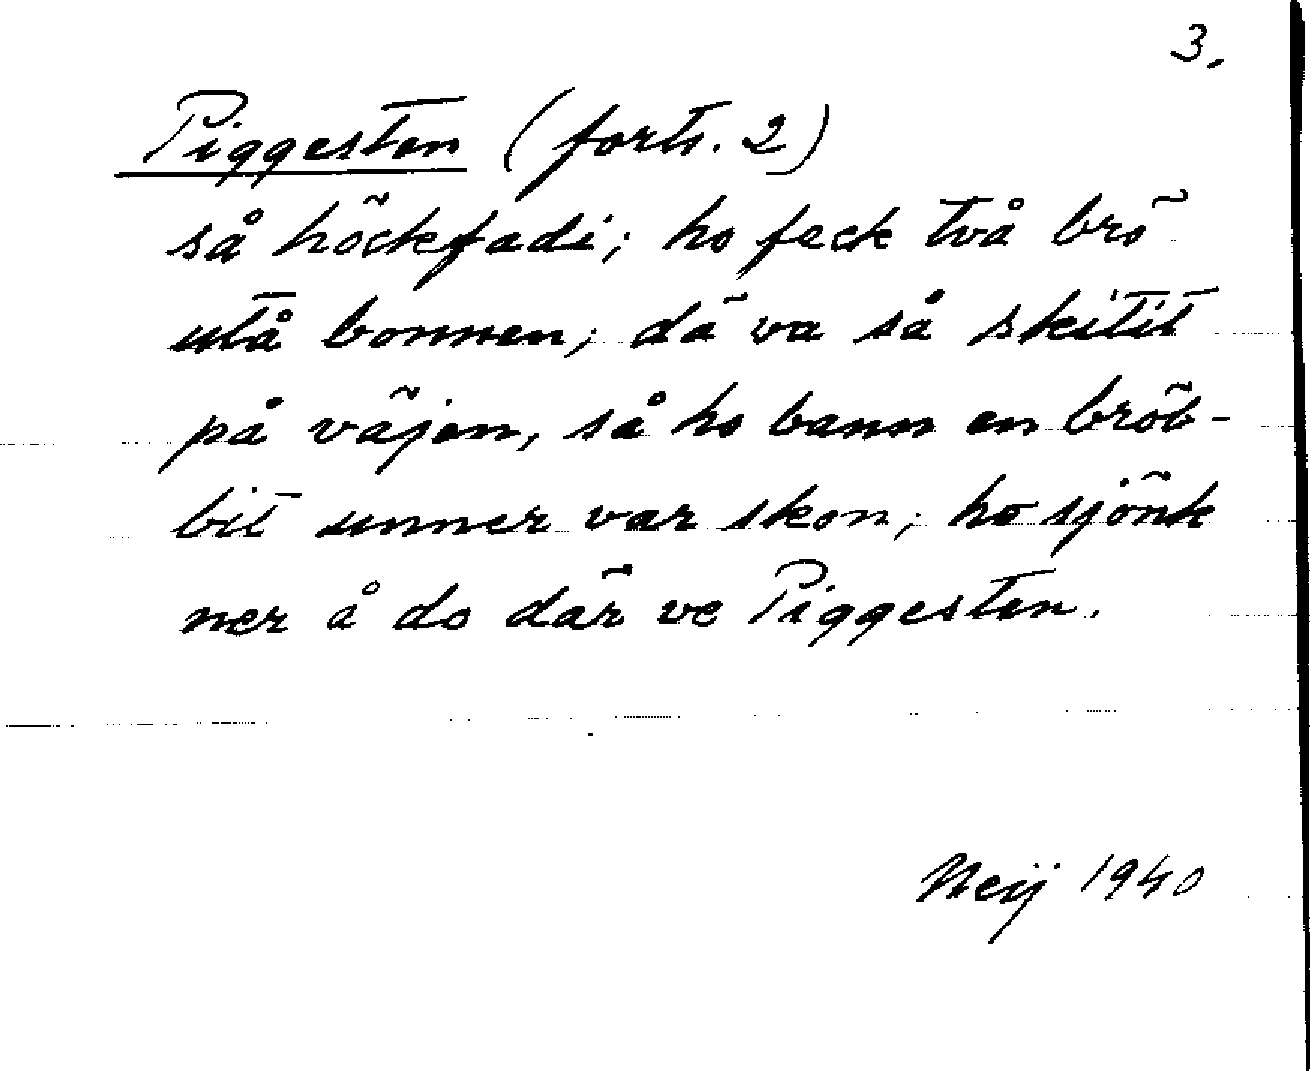 3.
Piggesten (forts. 2)
så höckfadi; ho feck två brö
utå bonnen; dä va så skitit
på väjen, så ho bann en bröb-
bit unner var skon; ho sjönk
ner å do där ve Piggesten.
Neij 1940